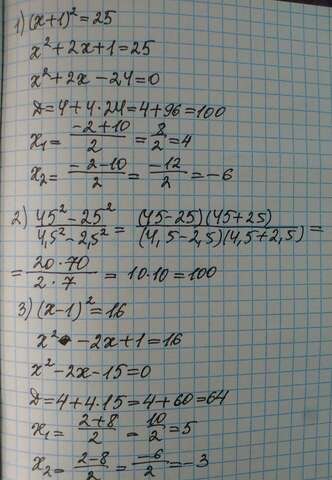 1) (x+1)² = 25
x² + 2x + 1 = 25
x² + 2x - 24 = 0
D = 4 + 4·24 = 4 + 96 = 100
x₁ = (-2+10)/2 = 8/2 = 4
x₂ = (-2-10)/2 = -12/2 = -6
2) (45² - 25²)/(4,5² - 2,5²) = ((45-25)(45+25))/((4,5-2,5)(4,5+2,5)) =
= (20·70)/(2·7) = 10·10 = 100
3) (x-1)² = 16
x² - 2x + 1 = 16
x² - 2x - 15 = 0
D = 4 + 4·15 = 4 + 60 = 64
x₁ = (2+8)/2 = 10/2 = 5
x₂ = (2-8)/2 = -6/2 = -3